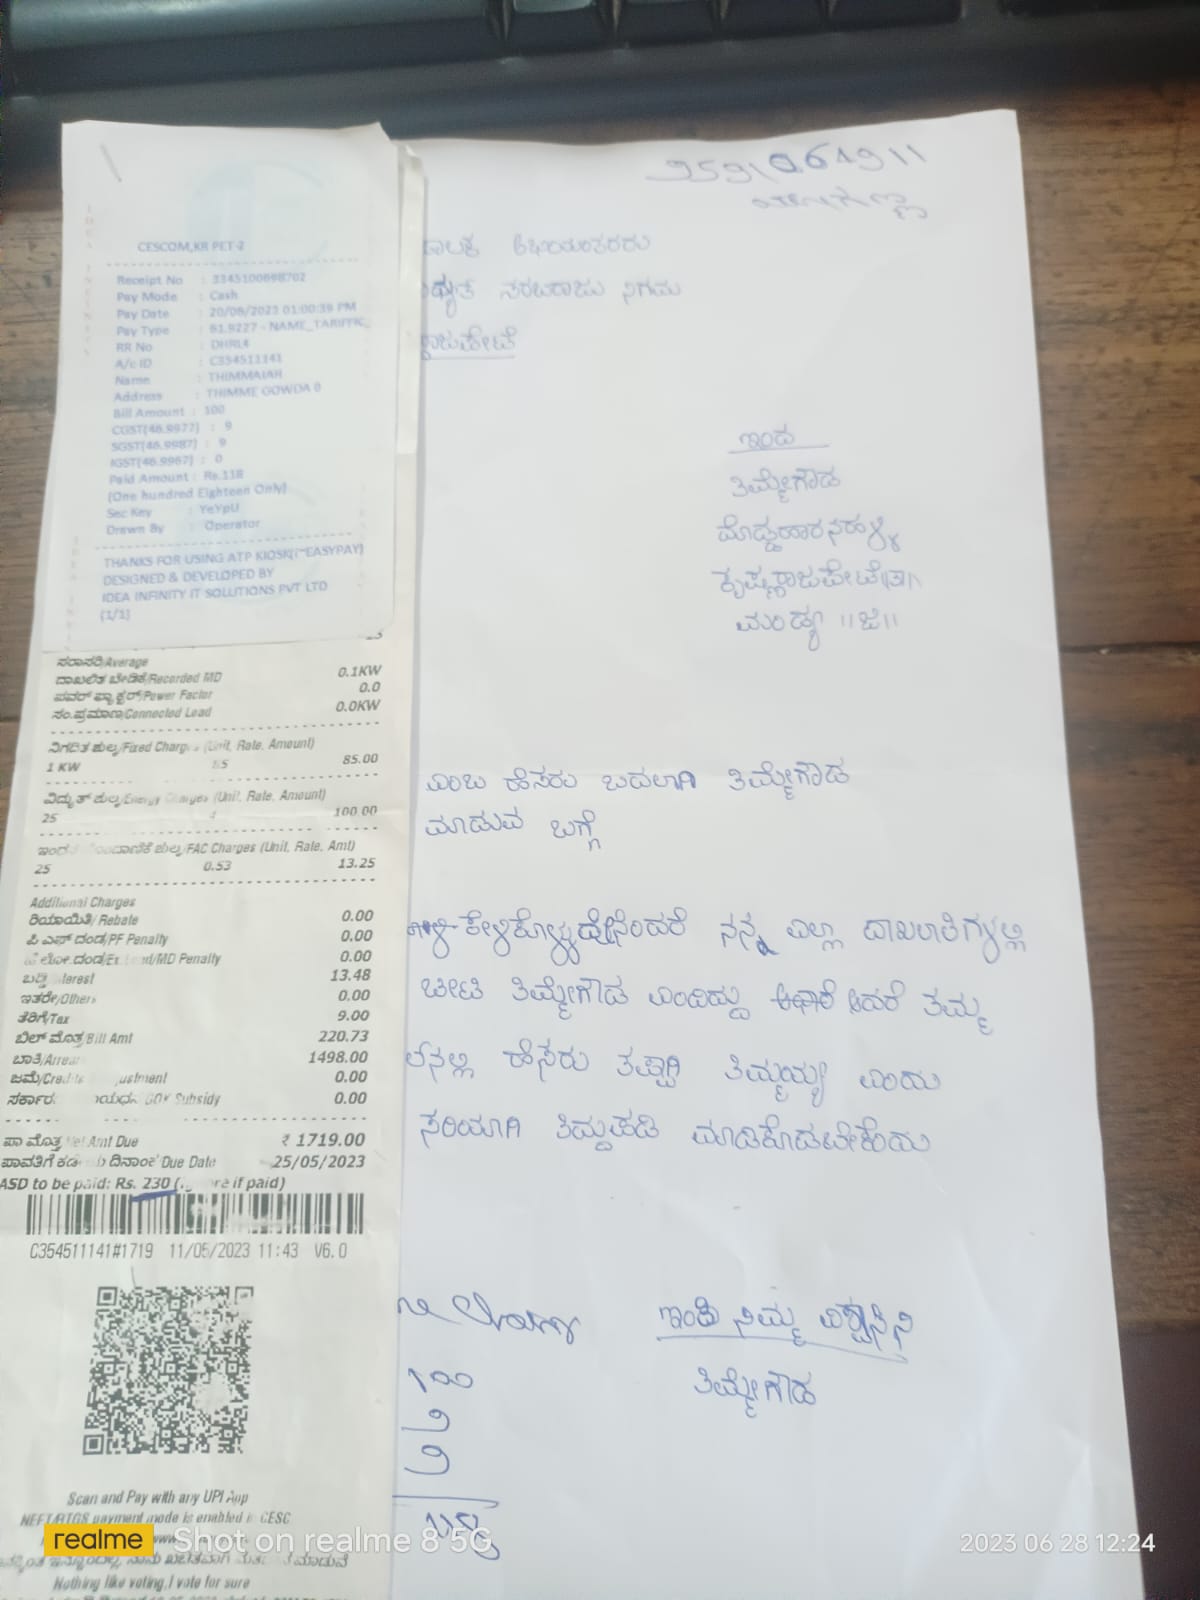 CESCOM,KR PET-2
Receipt No : 3345100698702
Pay Mode : Cash
Pay Date : 20/06/2023 01:00:39 PM
Pay Type : 61.9227 - NAME_TARIFFIC
RR No : DHRL4
A/c ID : C354511141
Name : THIMMAIAH
Address : THIMME GOWDA 0
Bill Amount : 100
CGST[46.9977] : 9
SGST[46.9987] : 9
IGST[46.9967] : 0
Paid Amount : Rs.118
(One hundred Eighteen Only)
Sec Key : YeYpU
Drawn By : Operator
THANKS FOR USING ATP KIOSK(~EASYPAY)
DESIGNED & DEVELOPED BY
IDEA INFINITY IT SOLUTIONS PVT LTD
(1/1)
ಸರಾಸರಿ/Average
ದಾಖಲಿತ ಬೇಡಿಕೆ/Recorded MD 0.1KW
ಪವರ್ ಫ್ಯಾಕ್ಟರ್/Power Factor 0.0
ಸಂ.ಪ್ರಮಾಣ/Connected Load 0.0KW
ನಿಗದಿತ ಶುಲ್ಕ/Fixed Charges (Unit, Rate, Amount)
1 KW 85.00
ವಿದ್ಯುತ್ ಶುಲ್ಕ/Energy Charges (Unit, Rate, Amount)
25 4 100.00
ಶುಲ್ಕ/FAC Charges (Unit, Rate, Amt)
25 0.53 13.25
Additional Charges
ರಿಯಾಯಿತಿ/ Rebate 0.00
ಪಿ ಎಫ್ ದಂಡ/PF Penalty 0.00
ಲೋ.ದಂಡ/Ex. Load/MD Penalty 0.00
ಬಡ್ಡಿ/Interest 13.48
ಇತರೇ/Others 0.00
ತೆರಿಗೆ/Tax 9.00
ಬಿಲ್ ಮೊತ್ತ/Bill Amt 220.73
ಬಾಕಿ/Arrears 1498.00
ಜಮೆ/Credits Adjustment 0.00
ಸರ್ಕಾರ GOK Subsidy 0.00
ಪಾ ಮೊತ್ತ/Net Amt Due ₹ 1719.00
ಪಾವತಿಗೆ ಕಡೆ ದಿನಾಂಕ Due Date 25/05/2023
ASD to be paid: Rs. 230 (Ignore if paid)
C354511141#1719 11/05/2023 11:43 V6.0
Scan and Pay with any UPI App
NEFT/RTGS payment mode is enabled in CESC
Nothing like voting,I vote for sure
ಸರಬರಾಜು ನಿಗಮ
ಇಂದ
ತಿಮ್ಮೇಗೌಡ
ಕೃಷ್ಣರಾಜಪೇಟೆ ತಾ||
ಮಂಡ್ಯ ||ಜಿ||
ಎಂಬ ಹೆಸರು ಬದಲಾಗಿ ತಿಮ್ಮೇಗೌಡ
ಮಾಡುವ ಬಗ್ಗೆ
ಕೇಳಿಕೊಳ್ಳುವುದೇನೆಂದರೆ ನನ್ನ ಎಲ್ಲಾ ದಾಖಲಾತಿಗಳಲ್ಲಿ
ತಿಮ್ಮೇಗೌಡ ಎಂದಿದ್ದು ಆದರೆ ತಮ್ಮ
ಹೆಸರು ತಪ್ಪಾಗಿ ತಿಮ್ಮಯ್ಯ ಎಂದು
ಸರಿಯಾಗಿ ತಿದ್ದುಪಡಿ ಮಾಡಿಕೊಡಬೇಕೆಂದು
ಇಂತಿ ನಿಮ್ಮ ವಿಶ್ವಾಸಿ
ತಿಮ್ಮೇಗೌಡ
100
9
9
118
realme Shot on realme 8 5G 2023 06 28 12:24